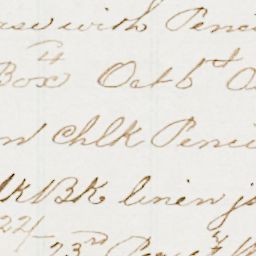 ase with Penci
Box 4 Oct 6th O
n Chlk Penci
lk BK linen j
22/4
23rd